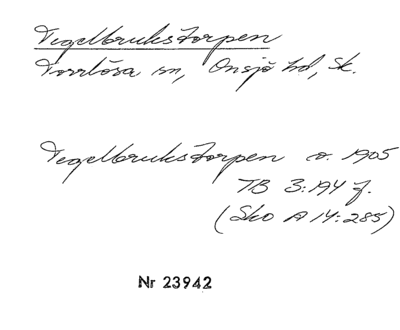 Tegelbrukstorpen
Torrlösa sn, Onsjö hd, Sk.
Tegelbrukstorpen o. 1905
TB 3:194 f.
(Sko A 14:285)
Nr 23942